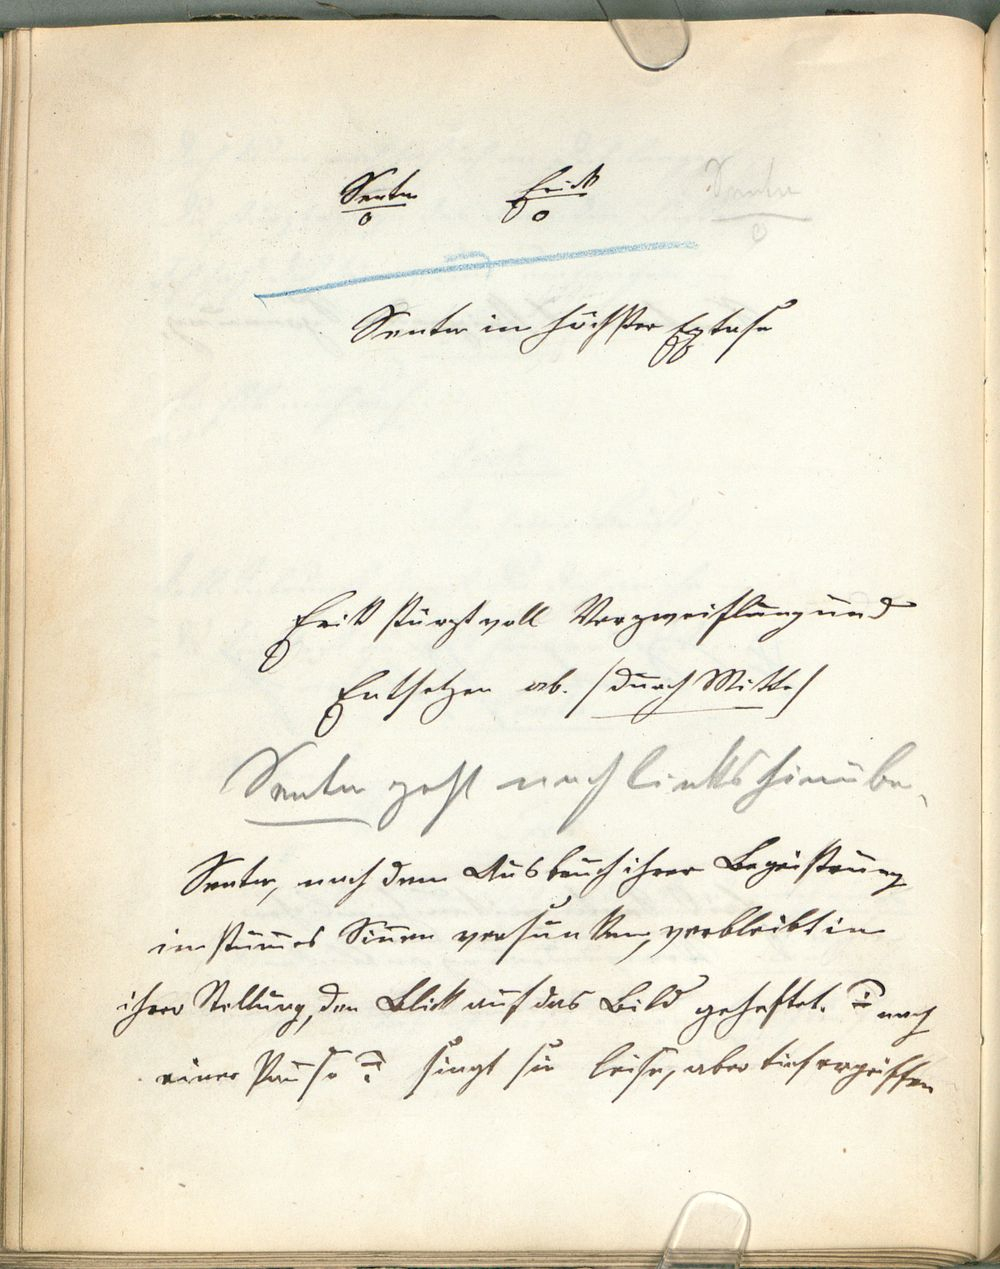 Senta Erik Senta
Senta in höchster Extase
Erik stürzt voll Verzweiflung und
Entsetzen ab. (durch Mitte)
Senta geht nach links hinüber
Senta, nach dem Ausbruch ihrer Begeisterung
in stummes Sinnen versunken, verbleibt in
ihrer Stellung, den Blick auf das Bild geheftet. nach
einer Pause singt sie leise, aber tief ergriffen